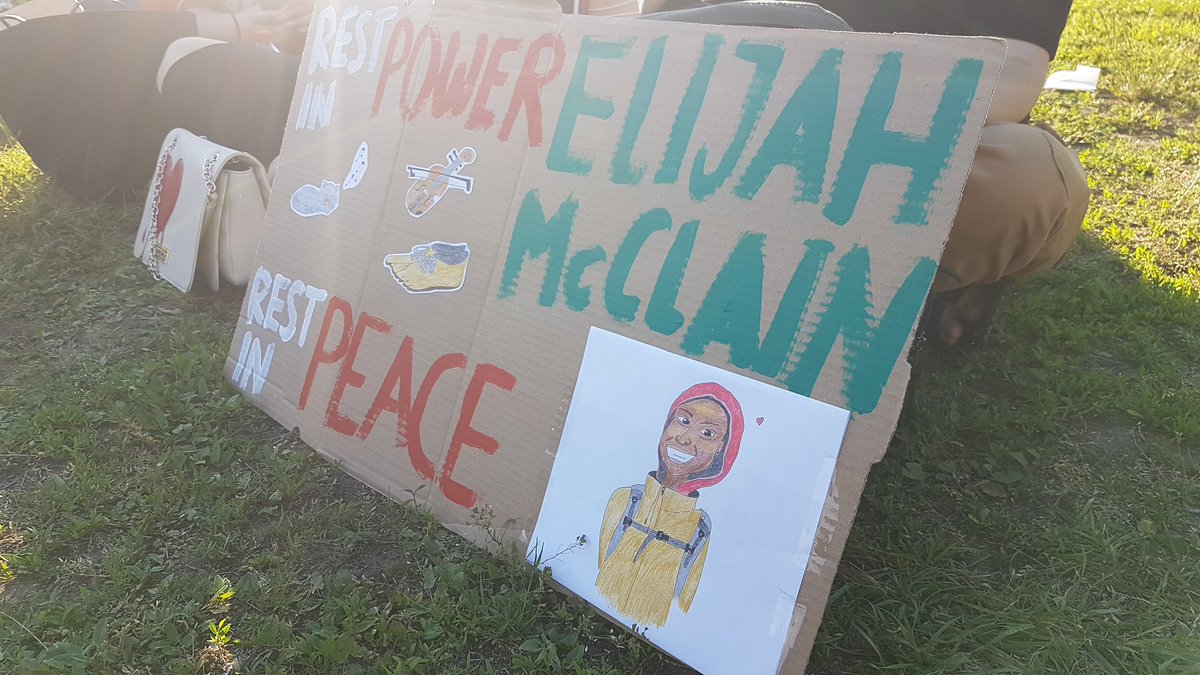 REST IN POWER
ELIJAH
McCLAIN
REST IN PEACE